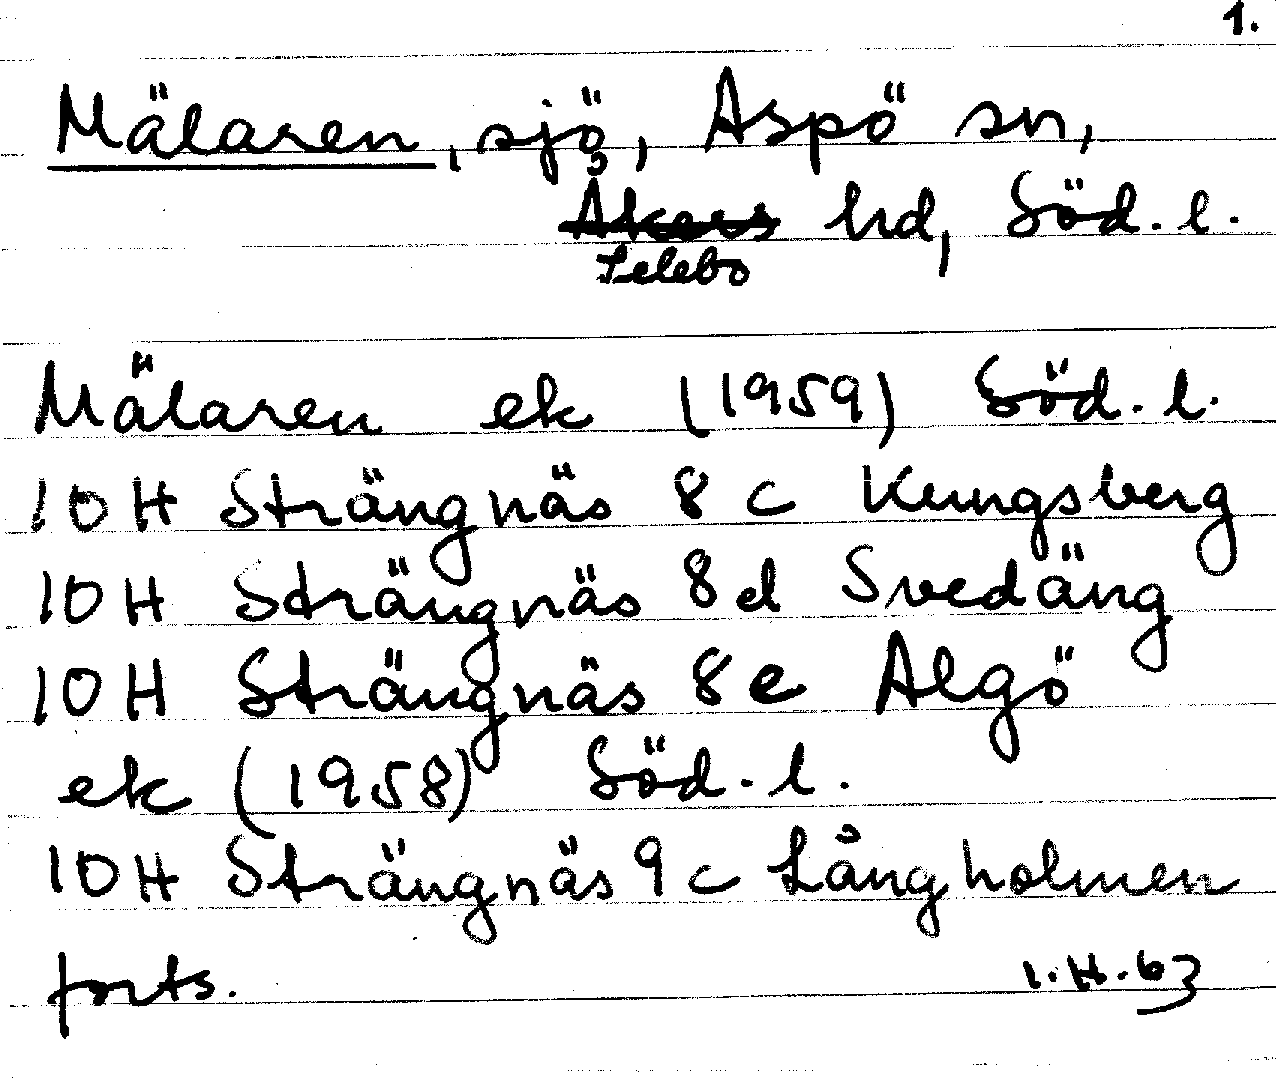 1.
Mälaren, sjö, Aspö sn,
Åkers hd, Söd. l.
Selebo
Mälaren ek (1959) Söd. l.
10 H Strängnäs 8 c Kungsberg
10 H Strängnäs 8d Svedäng
10 H Strängnäs 8 e Algö
ek (1958) Söd. l.
10 H Strängnäs 9 c Långholmen
forts.